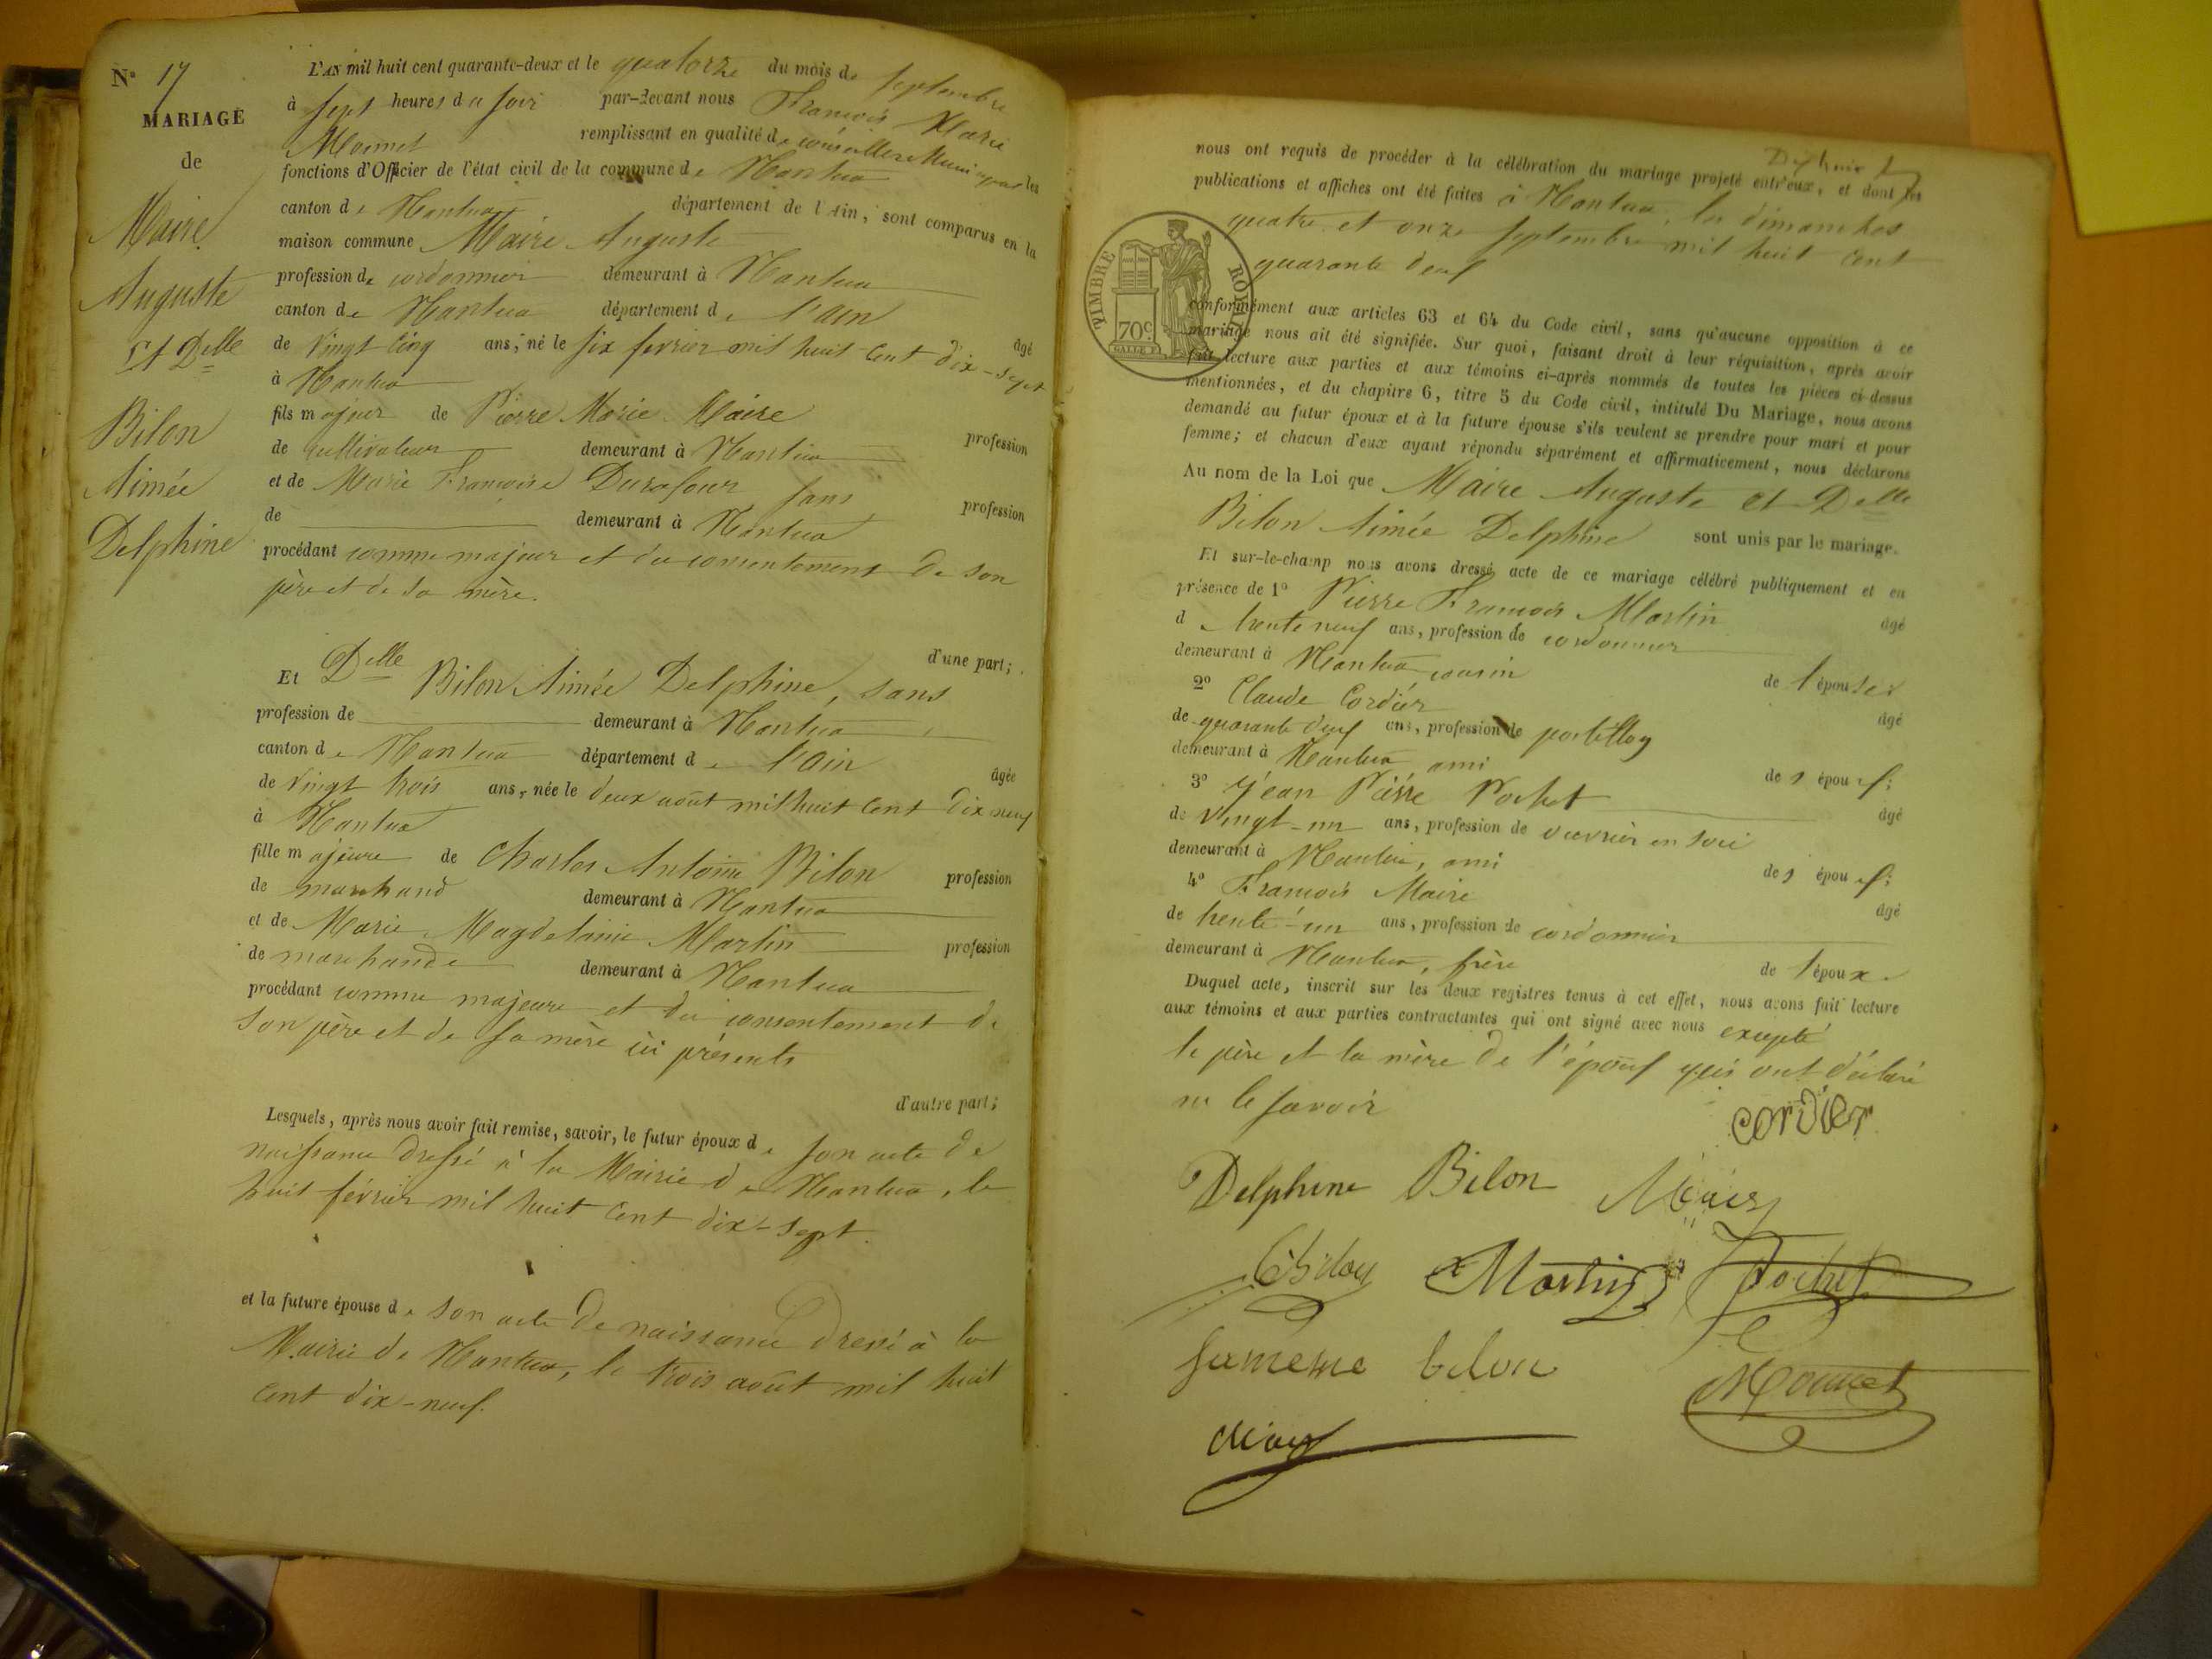 Nº 17
MARIAGE
de
Maire
Auguste
et Delle
Bilon
Aimée
Delphine
L'AN mil huit cent quarante-deux et le quatorze du mois de septembre
à sept heures du soir par-devant nous François Marie
Monnet remplissant en qualité de conseiller Municipal les
fonctions d'Officier de l'état civil de la commune de Nantua
canton de Nantua département de l'Ain, sont comparus en la
maison commune Maire Auguste
profession de cordonnier demeurant à Nantua
canton de Nantua département de l'ain âgé
de vingt cinq ans, né le six fevrier mil huit cent dix-sept
à Nantua
fils majeur de Pierre Marie Maire profession
de cultivateur demeurant à Nantua
et de Marie Françoise Durafour sans profession
de demeurant à Nantua
procédant comme majeur et du consentement de son
père et de sa mère.
d'une part;
Et Delle Bilon Aimée Delphine, sans
profession de demeurant à Nantua
canton de Nantua département de l'ain âgée
de vingt trois ans, née le deux août mil huit cent dix neuf
à Nantua
fille majeure de Charles Antoine Bilon profession
de marchand demeurant à Nantua
et de Marie Magdelaine Martin profession
de marchande demeurant à Nantua
procédant comme majeure et du consentement de
son père et de sa mère ici présents
d'autre part;
Lesquels, après nous avoir fait remise, savoir, le futur époux de son acte de
naissance dressé à la Mairie de Nantua, le
huit février mil huit cent dix-sept.
et la future épouse de son acte de naissance dressé à la
Mairie de Nantua, le trois août mil huit
cent dix-neuf.
nous ont requis de procéder à la célébration du mariage projeté entr'eux, et dont les
publications et affiches ont été faites à Nantua, les dimanches
quatre et onze septembre mil huit cent
quarante deux
TIMBRE ROYAL
70c
conformément aux articles 63 et 64 du Code civil, sans qu'aucune opposition à ce
mariage nous ait été signifiée. Sur quoi, faisant droit à leur réquisition, après avoir
fait lecture aux parties et aux témoins ci-après nommés de toutes les pièces ci-dessus
mentionnées, et du chapitre 6, titre 5 du Code civil, intitulé Du Mariage, nous avons
demandé au futur époux et à la future épouse s'ils veulent se prendre pour mari et pour
femme; et chacun d'eux ayant répondu séparément et affirmativement, nous déclarons
Au nom de la Loi que Maire Auguste et Delle
Bilon Aimée Delphine sont unis par le mariage.
Et sur-le-champ nous avons dressé acte de ce mariage célébré publiquement et en
présence de 1º Pierre François Martin âgé
de trente neuf ans, profession de cordonnier
demeurant à Nantua cousin de l'épouse
2º Claude Cordier âgé
de quarante deux ans, profession de postillon
demeurant à Nantua ami de s époux
3º Jean Pierre Pochet âgé
de vingt-un ans, profession de ouvrier en soie
demeurant à Nantua, ami de s époux
4º François Maire âgé
de trente-un ans, profession de cordonnier
demeurant à Nantua, frère de l'époux
Duquel acte, inscrit sur les deux registres tenus à cet effet, nous avons fait lecture
aux témoins et aux parties contractantes qui ont signé avec nous excepté
le père et la mère de l'époux qui ont déclaré
ne le savoir
Cordier
Delphine Bilon Maire
Martin Pochet
bilon
Monnet